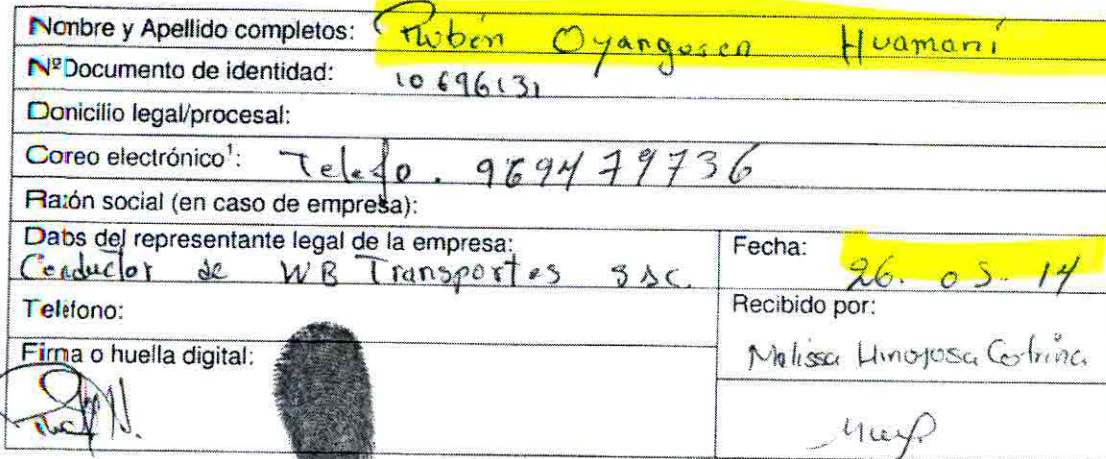 Nombre y Apellido completos: Rubén Oyanguren Huamaní
NºDocumento de identidad: 10696131
Domicilio legal/procesal:
Correo electrónico¹: Telefo. 969479736
Razón social (en caso de empresa):
Datos del representante legal de la empresa:
Conductor de WB Transportes SSC.
Fecha: 26. 05. 14
Teléfono:
Recibido por:
Melissa Hinojosa
Firma o huella digital: